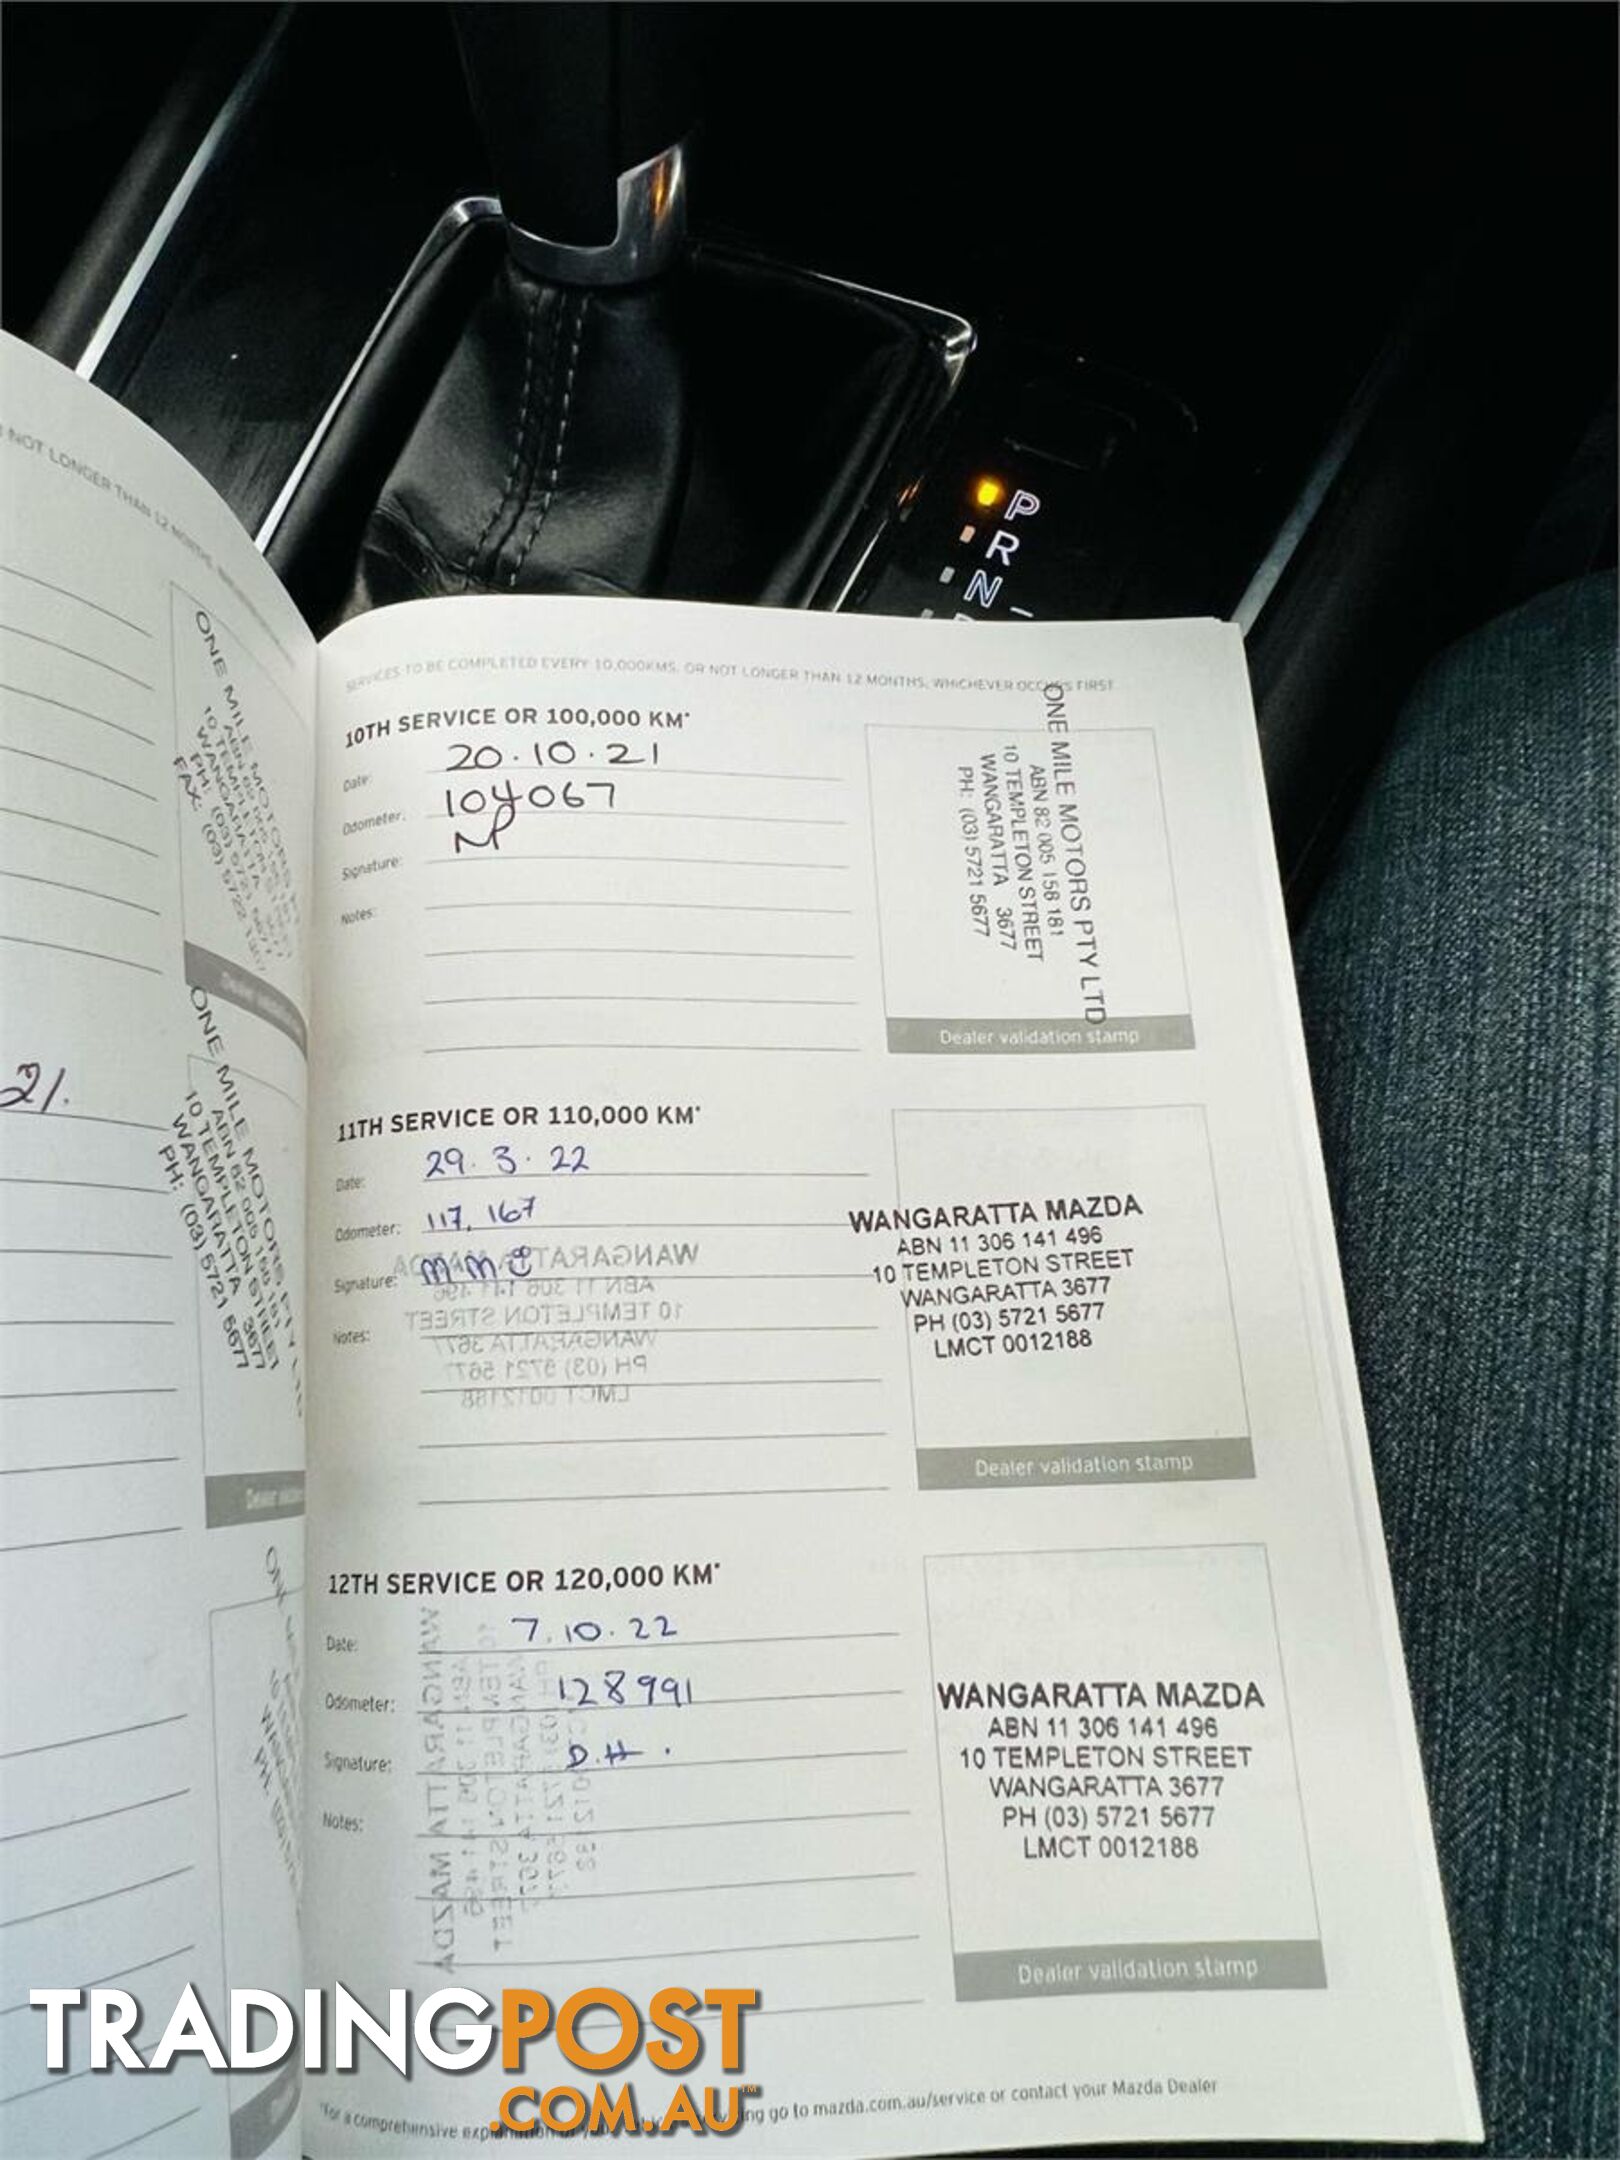 P
R
N
NOT LONGER THAN 12 MONTHS,
ONE MILE MOTORS
10 TEMPLETON
WANGARATTA 3677
PH: (03) 5721 5677
FAX: (03) 5722
Dealer
21.
ONE MILE MOTORS PTY LTD
ABN 82 005 158 181
10 TEMPLETON STREET
WANGARATTA 3677
PH: (03) 5721 5677
Dealer
SERVICES TO BE COMPLETED EVERY 10,000KMS, OR NOT LONGER THAN 12 MONTHS, WHICHEVER OCCURS FIRST
10TH SERVICE OR 100,000 KM*
Date: 20.10.21
Odometer: 104067
Signature:
Notes:
ONE MILE MOTORS PTY LTD
ABN 82 005 158 181
10 TEMPLETON STREET
WANGARATTA 3677
PH: (03) 5721 5677
Dealer validation stamp
11TH SERVICE OR 110,000 KM*
Date: 29.3.22
Odometer: 117,167
Signature: MM
Notes:
WANGARATTA MAZDA
ABN 11 306 141 496
10 TEMPLETON STREET
WANGARATTA 3677
PH (03) 5721 5677
LMCT 0012188
WANGARATTA MAZDA
ABN 11 306 141 496
10 TEMPLETON STREET
WANGARATTA 3677
PH (03) 5721 5677
LMCT 0012188
Dealer validation stamp
12TH SERVICE OR 120,000 KM*
Date: 7.10.22
Odometer: 128991
Signature: D.H.
Notes:
WANGARATTA MAZDA
ABN 11 306 141 496
10 TEMPLETON STREET
WANGARATTA 3677
PH (03) 5721 5677
LMCT 0012188
Dealer validation stamp
*For a comprehensive go to mazda.com.au/service or contact your Mazda Dealer
TRADINGPOST
.COM.AU™